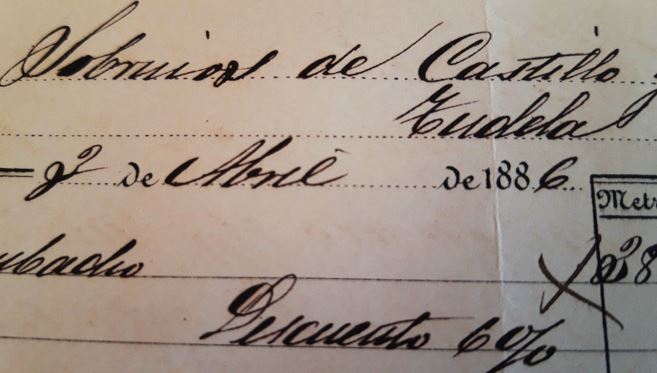 Sobrinos de Castillo y
Tudela
2 de Abril de 1886
Metr
ubadio 38
Descuento 6%